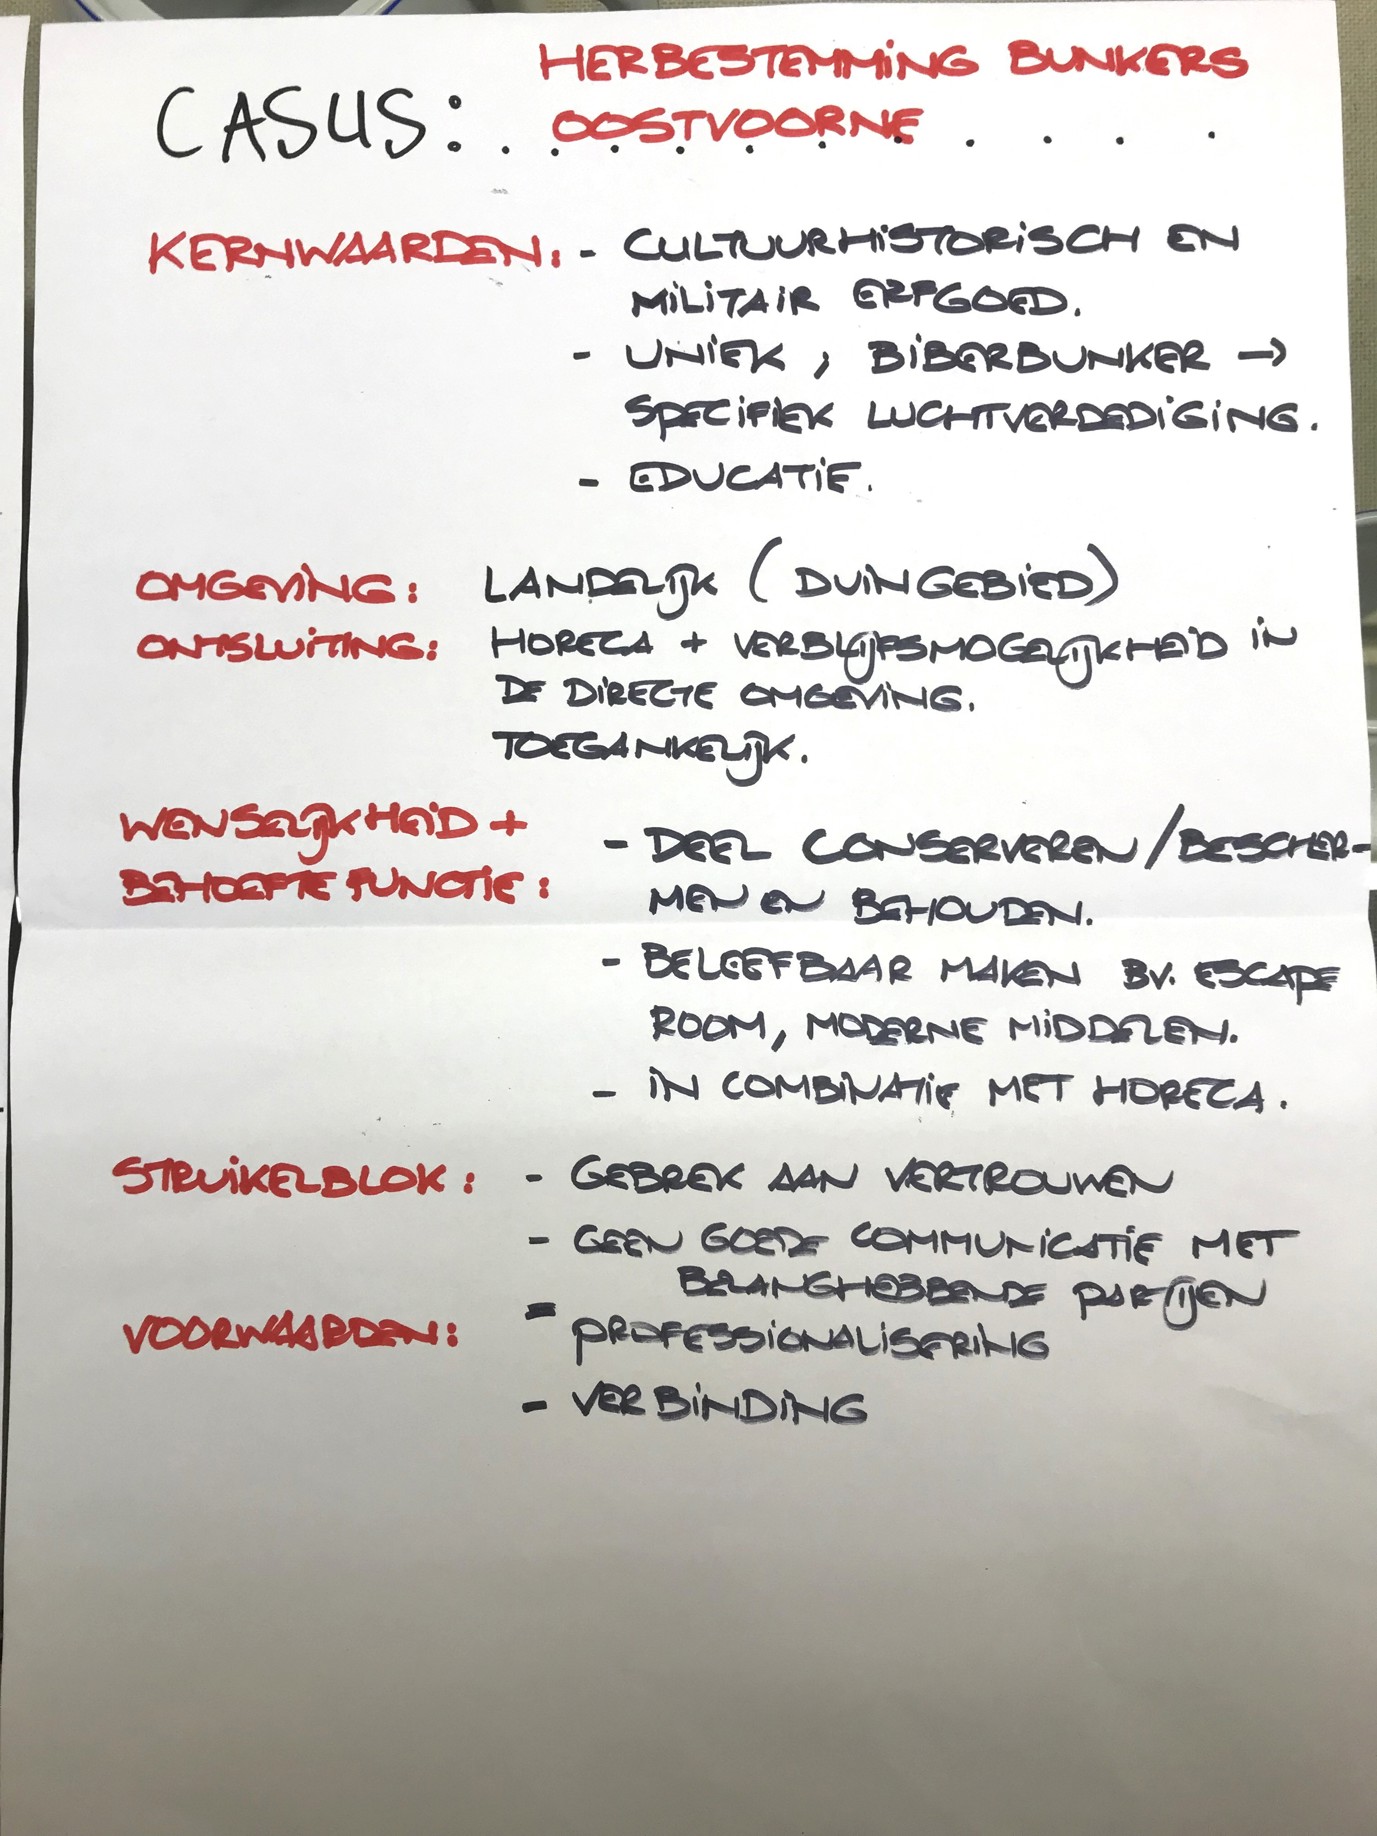 HERBESTEMMING BUNKERS
CASUS: OOSTVOORNE . . . .
KERNWAARDEN: - CULTUURHISTORISCH EN
MILITAIR ERFGOED.
- UNIEK, BIBERBUNKER →
SPECIFIEK LUCHTVERDEDIGING.
- EDUCATIE.
OMGEVING: LANDELIJK (DUINGEBIED)
ONTSLUITING: HORECA + VERBLIJFSMOGELIJKHEID IN
DE DIRECTE OMGEVING.
TOEGANKELIJK.
WENSELIJKHEID +
BEHOEFTE FUNCTIE: - DEEL CONSERVEREN/BESCHER-
MEN EN BEHOUDEN.
- BELEEFBAAR MAKEN BV. ESCAPE
ROOM, MODERNE MIDDELEN.
- IN COMBINATIE MET HORECA.
STRUIKELBLOK: - GEBREK AAN VERTROUWEN
- GEEN GOEDE COMMUNICATIE MET
BELANGHEBBENDE PARTIJEN
VOORWAARDEN: - PROFESSIONALISERING
- VERBINDING